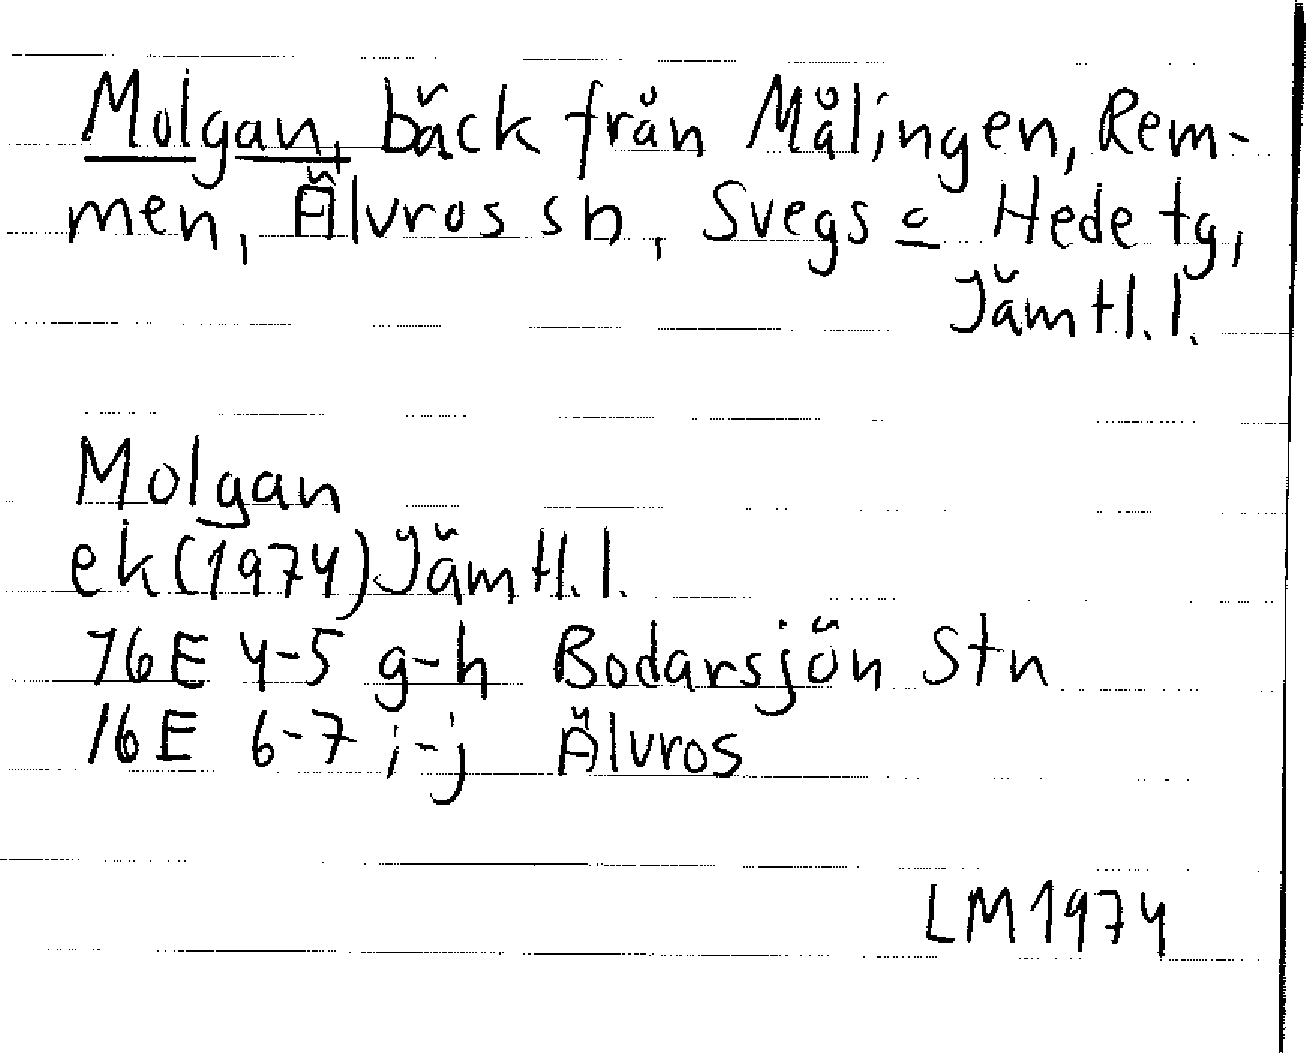 Molgan, bäck från Målingen, Rem-
men, Älvros sn, Svegs o Hede tg,
Jämtl. l.
Molgan
ek (1974) Jämtl. l.
16E 4-5 g-h Bodarsjön Stn
16E 6-7 i-j Älvros
LM 1974